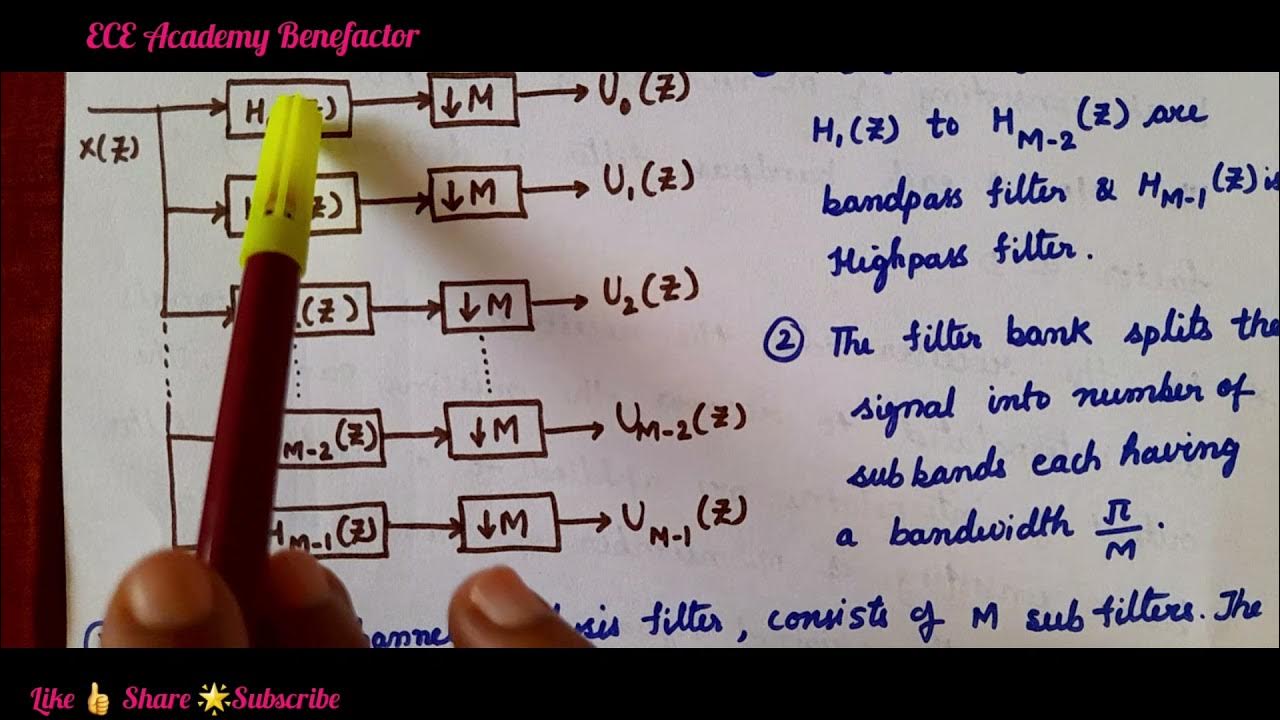 ECE Academy Benefactor
X(Z)
↓M
U₀(Z)
↓M
U₁(Z)
(Z)
↓M
U₂(Z)
M-2(Z)
↓M
U_M-2(Z)
H_M-1(Z)
↓M
U_M-1(Z)
H₁(Z) to H_M-2(Z) are
bandpass filter & H_M-1(Z) is
Highpass filter.
② The filter bank splits the
signal into number of
subbands each having
a bandwidth π/M.
filter, consists of M sub filters. The
Like 👍 Share 🌟Subscribe